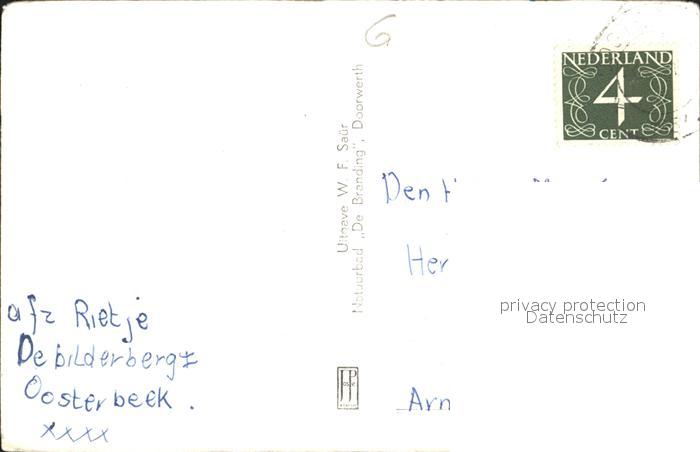 G
NEDERLAND
4
CENT
Uitgave W. F. Saür
Natuurbad „De Branding", Doorwerth
Den
Her
privacy protection
Datenschutz
Arn
afz Rietje
De bilderberg
Oosterbeek.
xxxx